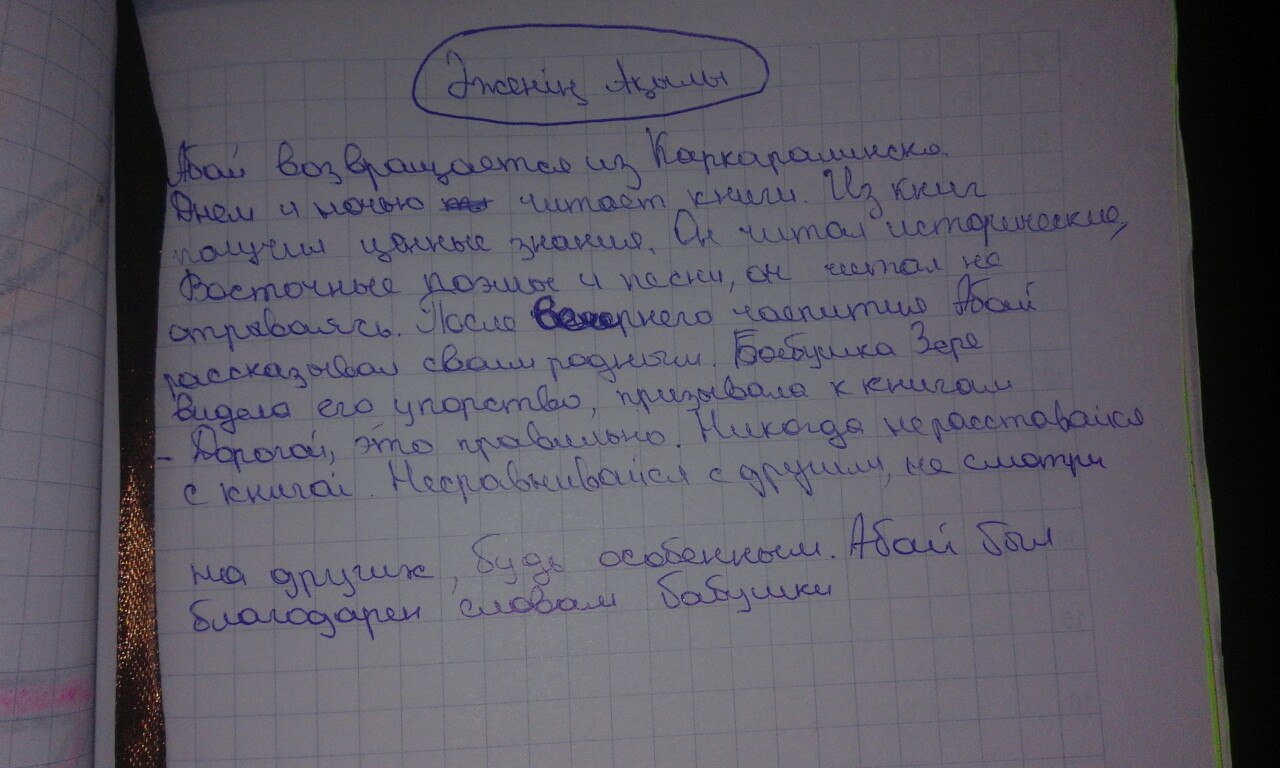 Әженің Ақылы
Абай возвращается из Каркаралинска.
Днем и ночью читает книги. Из книг
получил ценные знания. Он читал исторические,
Восточные поэмы и песни, он читал не
отрываясь. После вечернего чаепития Абай
рассказывал своим родным. Бабушка Зере
видела его упорство, призывала к книгам
- Дорогой, это правильно. Никогда не расставайся
с книгой. Несравнивайся с другими, не смотри
на других, будь особенным. Абай был
благодарен словам бабушки